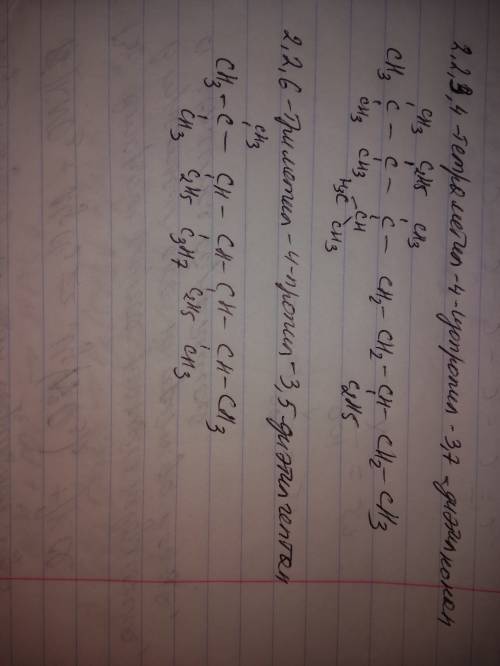 2,2,3,4-тетраметил-4-изопропил-3,7-диэтилнонан
CH3 C2H5 CH3
CH3 - C - C - C - CH2 - CH2 - CH - CH2 - CH3
CH3 CH3 CH C2H5
H3C CH3
2,2,6-триметил-4-пропил-3,5-диэтилгептан
CH3
CH3 - C - CH - CH - CH - CH - CH3
CH3 C2H5 C3H7 C2H5 CH3